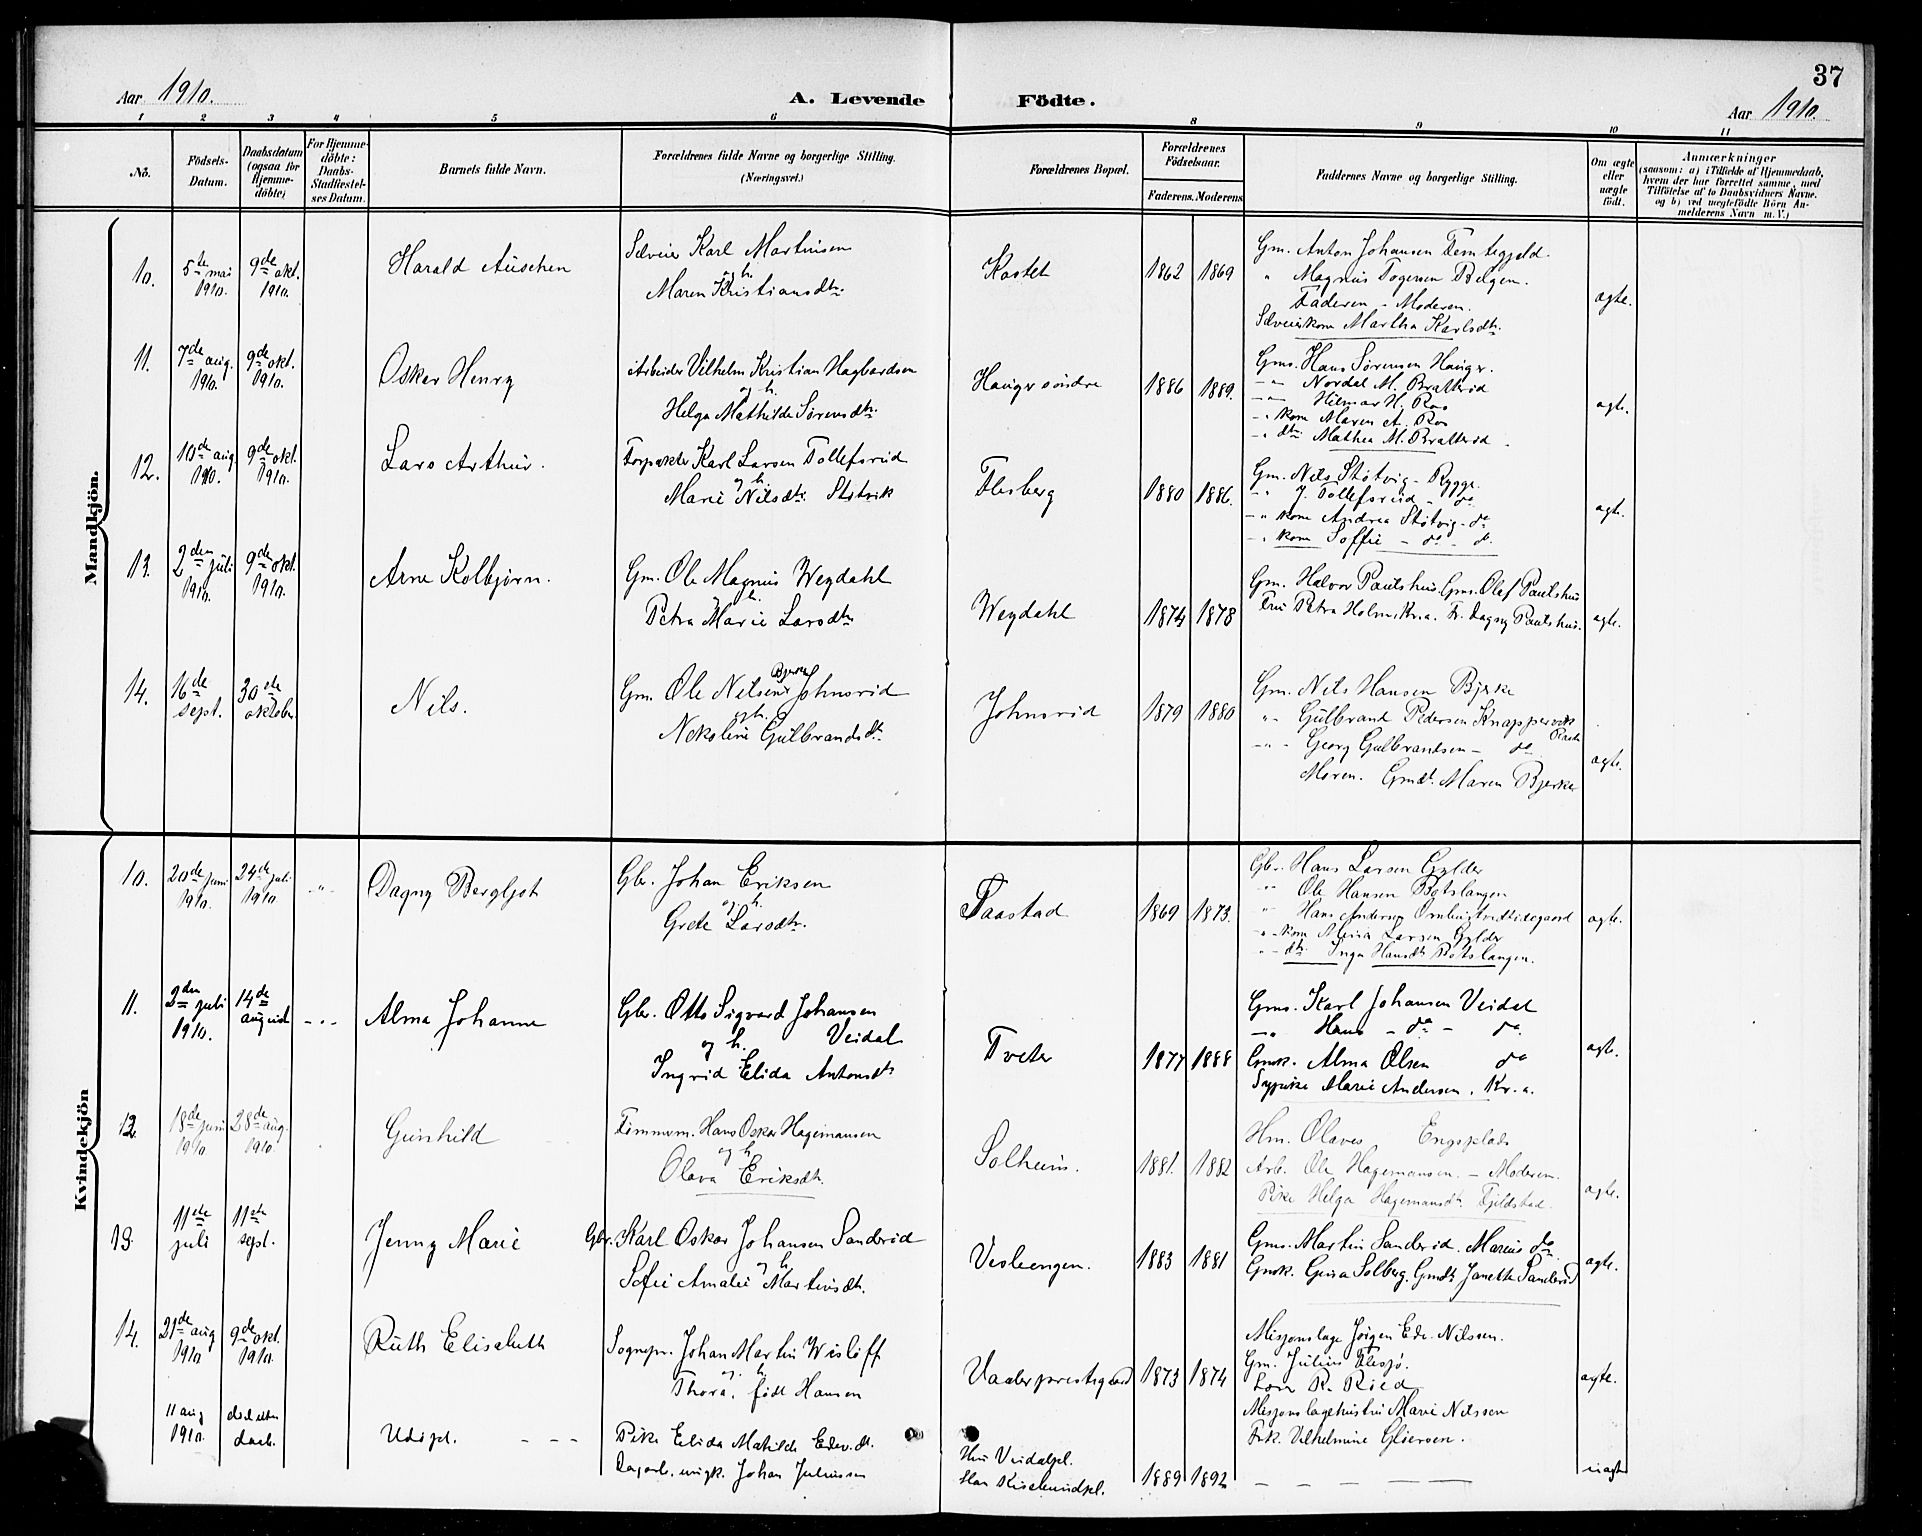 37
Aar 1910.
A. Levende Födte.
Aar 1910.
1 2 3 4 5 6 8 9 10 11
No.
Födsels-Datum.
Daabsdatum (ogsaa for Hjemme-döbte)
For Hjemme-döbte: Daabs-Stadfæstel-ses Datum.
Barnets fulde Navn.
Forældrenes fulde Navne og borgerlige Stilling. (Næringsvei.)
Forældrenes Bopæl.
Forældrenes Födselsaar.
Faderens. Moderens.
Faddernes Navne og borgerlige Stilling.
Om ægte eller uægte födt.
Anmærkninger
(saasom: a) i Tilfælde af Hjemmedaab,
hvem der har forrettet samme, med
Tilföielse af to Daabsvidners Navne.
og b) ved uægtefödte Börn An-
melderens Navn m. V.)
Mandkjön.
10. 5te mai 1910. 9de okt. 1910.
Harald
Karl Martinsen
og h.
Maren Kristiansdtr.
Kastet 1862 1869
Gm. Anton Johansen
" Magnus Belgen.
Faderen - Moderen.
kone Martha Karlsdtr.
ægte.
11. 7de aug. 1910. 9de okt. 1910.
Osker Henry
Arbeider Vilhelm Kristian Hagbardsen
og h.
Helga Mathilde Sørensdtr.
Hauger söndre 1886 1889.
Gms. Hans Sørensen Hauger.
Nordal M. Bratterød
Hilmar H. Ros
kone Maren A. Ros
dtr. Mathea M. Bratterød.
ægte.
12. 10de aug. 1910. 9de okt. 1910.
Lars Arthur.
Forpakter Karl Larsen Tollefsrud
og h.
Marie Nilsdtr. Støtvik
Flesberg 1880 1886.
Gm. Nils Støtvig - Rygge.
J. Tollefsrud - do
kone Andrea Støtvig - do
kone Soffie - do - do.
ægte.
13. 2den juli 1910. 9de okt. 1910.
Arne Kolbjørn.
Gm. Ole Magnus Weydahl
og h.
Petra Marie Larsdtr
Weydahl 1874 1878
Gm. Halvor Pautshus. Gms. Olaf Pautshus
Fru Petra Holm. Kr.a. Fr. Dagny Pautshus.
ægte.
14. 16de sept. 30de oktober.
Nils.
Gm. Ole Nilsen Bjerke Johnsrød
og h.
Nekoline Gulbrandsdtr.
Johnsrød 1879 1880
Gm. Nils Hansen Bjerke
" Gulbrand Pedersen Knappervik
" Georg Gulbrandsen - do
Moren. Gmdt. Maren Bjerke
ægte.
Kvindekjön
10. 20de juni 1910. 24de juli 1910. "
Dagny Bergljot
Gbr. Johan Eriksen
og h.
Grete Larsdtr.
Taastad 1869 1873.
Gbr. Hans Larsen Gylder
" Ole Hansen Botslangen
" Hans Andersen
kone Larsen Gylder
dtr. Inga Hansdtr Botslangen.
ægte.
11. 2den juli 1910. 14de august
Alma Johanne
Gbr. Otto Sigvard Johansen
og h. Veidal
Ingrid Elida Antonsdtr
Tveter 1877 1888
Gms. Karl Johansen Veidal
Hans - do - do.
Gmsk. Alma Olsen do
Sypike Marie Andersen. Kr.a.
ægte.
12. 18de juni 1910 28de aug. 1910.
Gunhild
Tømmerm. Hans Osker Hagemansen
og h.
Olava Eriksdtr.
Solheim. 1881. 1882
Hm. Olaves Engsplads
Arb. Ole Hagemansen. - Moderen.
Pike Helga Hagemansdtr. Fjeldstad.
ægte.
13. 11te juli 11te sept.
Jenny Marie
Gbr. Karl Oskar Johansen Sanderød
og h.
Sofie Amalie Martinsdtr.
Vesleengen. 1883 1881
Gms. Martin Sanderød. Marius do
Gmsk. Gina Solberg. Gmdt. Janette Sanderød
ægte.
14. 21de aug 1910 9de okt. 1910.
Ruth Elisabeth
Sognepr. Johan Martin Wisløff
og h.
Thora, født Hansen
Vaaler prestegaard 1873 1874
Misjonslage Jørgen Edv. Nilssen.
Gm. Julius Flesjø.
R. Ried
Misjonslagehustru Marie Nilssen
Frk. Vilhelmine Gløersen.
ægte.
11 aug 1910. død uden daab.
Udøpt. - - -
Pike Elida Matilde Edv.dt.
Dagarb. ungk. Johan Juliussen
Hun Veidalpl.
Han 1889 1892
uægte